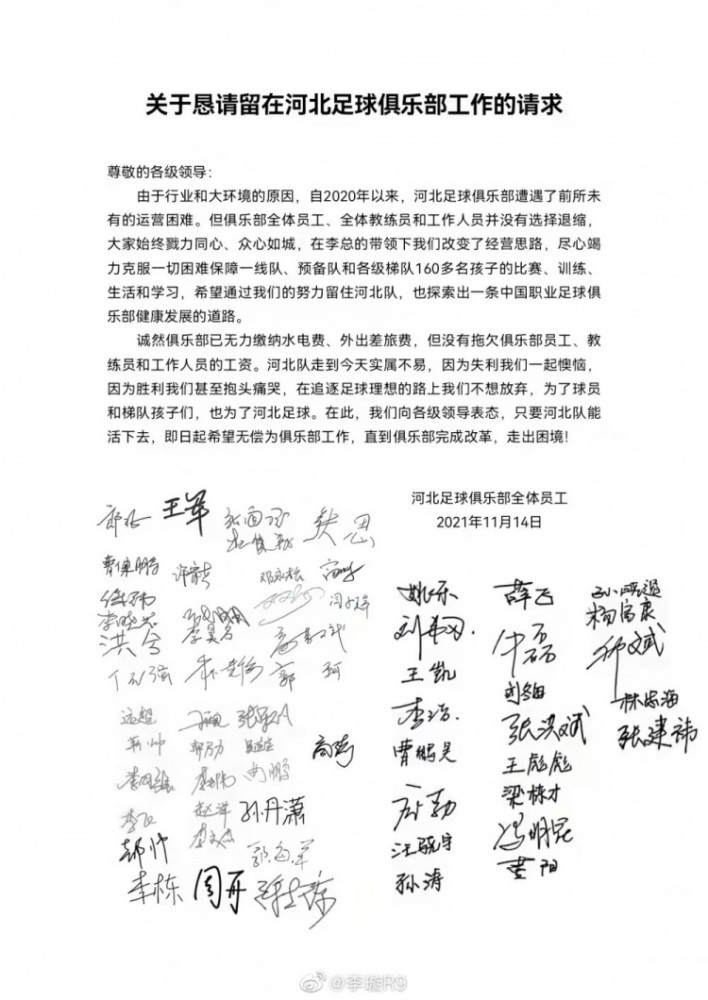 关于恳请留在河北足球俱乐部工作的请求
尊敬的各级领导：
由于行业和大环境的原因，自2020年以来，河北足球俱乐部遭遇了前所未
有的运营困难。但俱乐部全体员工、全体教练员和工作人员并没有选择退缩，
大家始终戮力同心、众心如城，在李总的带领下我们改变了经营思路，尽心竭
力克服一切困难保障一线队、预备队和各级梯队160多名孩子的比赛、训练、
生活和学习，希望通过我们的努力留住河北队，也探索出一条中国职业足球俱
乐部健康发展的道路。
诚然俱乐部已无力缴纳水电费、外出差旅费，但没有拖欠俱乐部员工、教
练员和工作人员的工资。河北队走到今天实属不易，因为失利我们一起懊恼，
因为胜利我们甚至抱头痛哭，在追逐足球理想的路上我们不想放弃，为了球员
和梯队孩子们，也为了河北足球。在此，我们向各级领导表态，只要河北队能
活下去，即日起希望无偿为俱乐部工作，直到俱乐部完成改革，走出困境！
河北足球俱乐部全体员工
2021年11月14日
王军
洪兮
郭珂
孙丹潇
李栋 周开
姚乐 薛飞
杨富康
王凯
李浩 张洪斌 林忠海
曹鹏昊 王彪彪 张建祎
梁栋才
汪骁宇 冯明昆
孙涛 董阳
@李璇R9